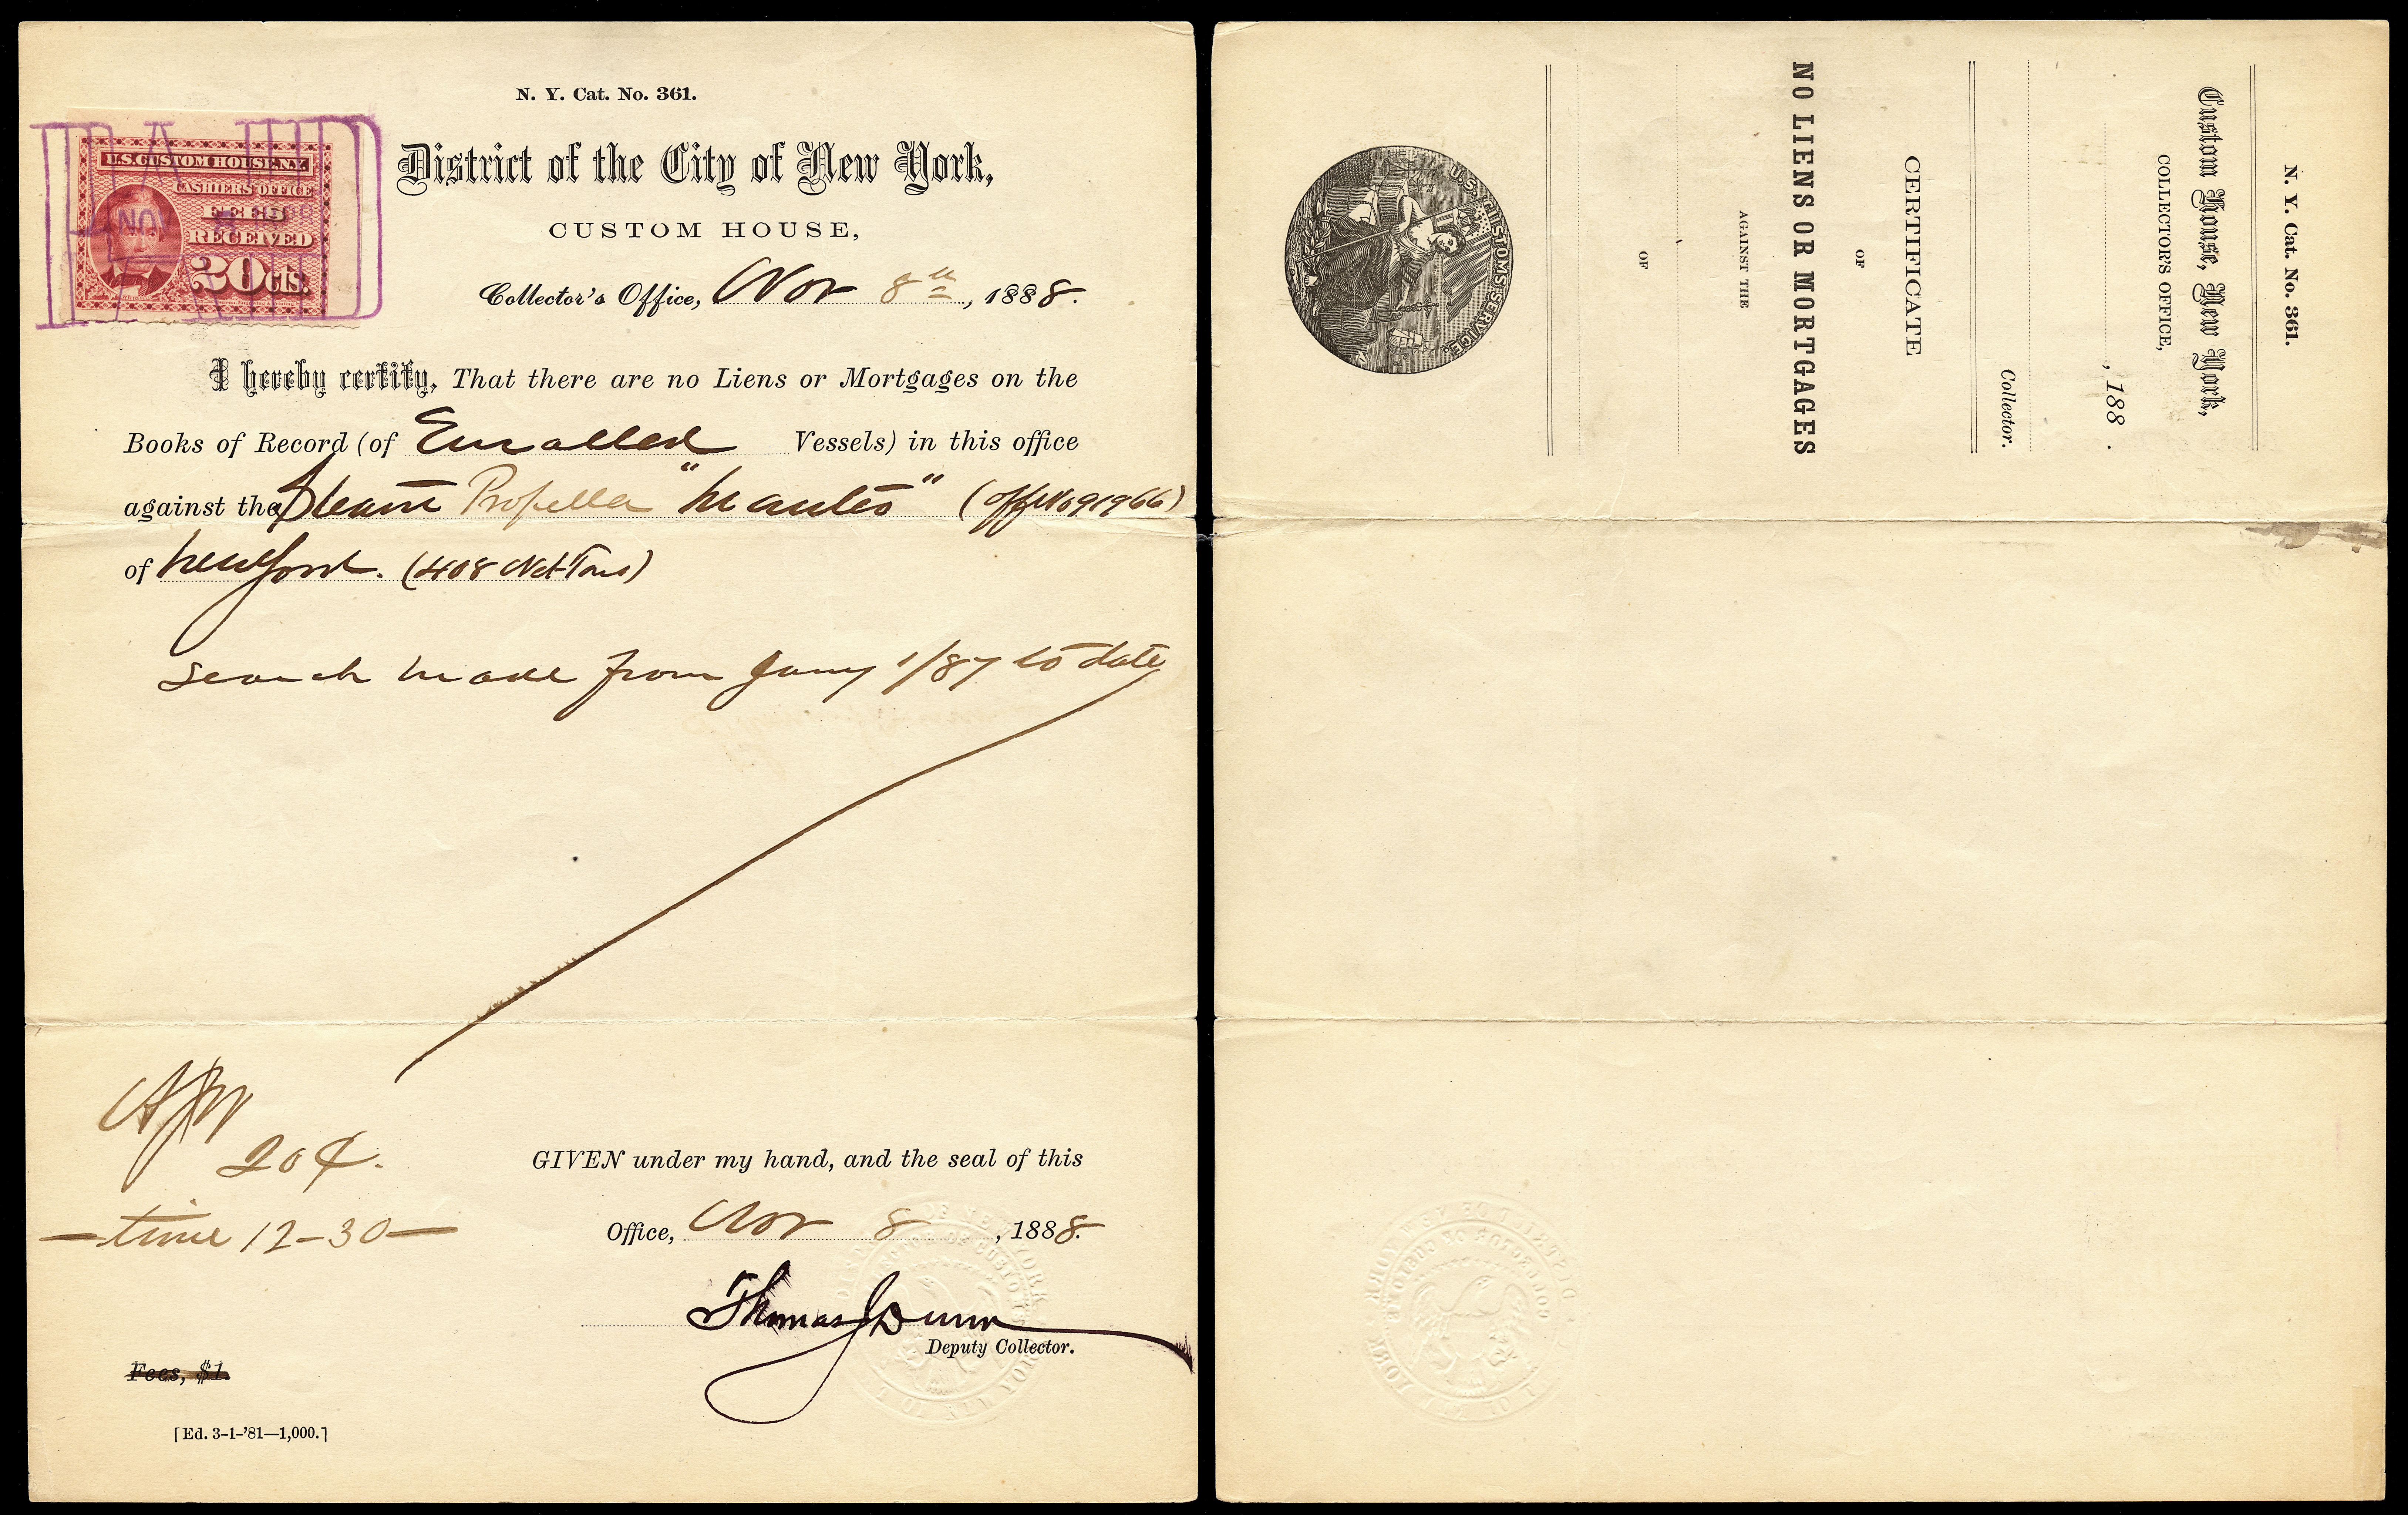 N. Y. Cat. No. 361.
U.S. CUSTOM HOUSE N.Y.
CASHIERS OFFICE
FEES
RECEIVED
20 cts.
PAID
NOV 8
District of the City of New York,
CUSTOM HOUSE,
Collector's Office, Nov 8th, 1888.
I hereby certify, That there are no Liens or Mortgages on the
Books of Record (of Enrolled Vessels) in this office
against the Steam Propeller "Manteo" (Off No 91966)
of New York. (408 Net Tons)
Search made from Jany 1/87 to date
20¢.
— time 12–30 —
GIVEN under my hand, and the seal of this
Office, Nov 8, 1888.
Thomas J Dunn
Deputy Collector.
Fees, $1.
[Ed. 3–1–'81—1,000.]
N. Y. Cat. No. 361.
Custom House, New York,
COLLECTOR'S OFFICE,
, 188 .
Collector.
CERTIFICATE
OF
NO LIENS OR MORTGAGES
AGAINST THE
OF
U.S. CUSTOMS SERVICE.